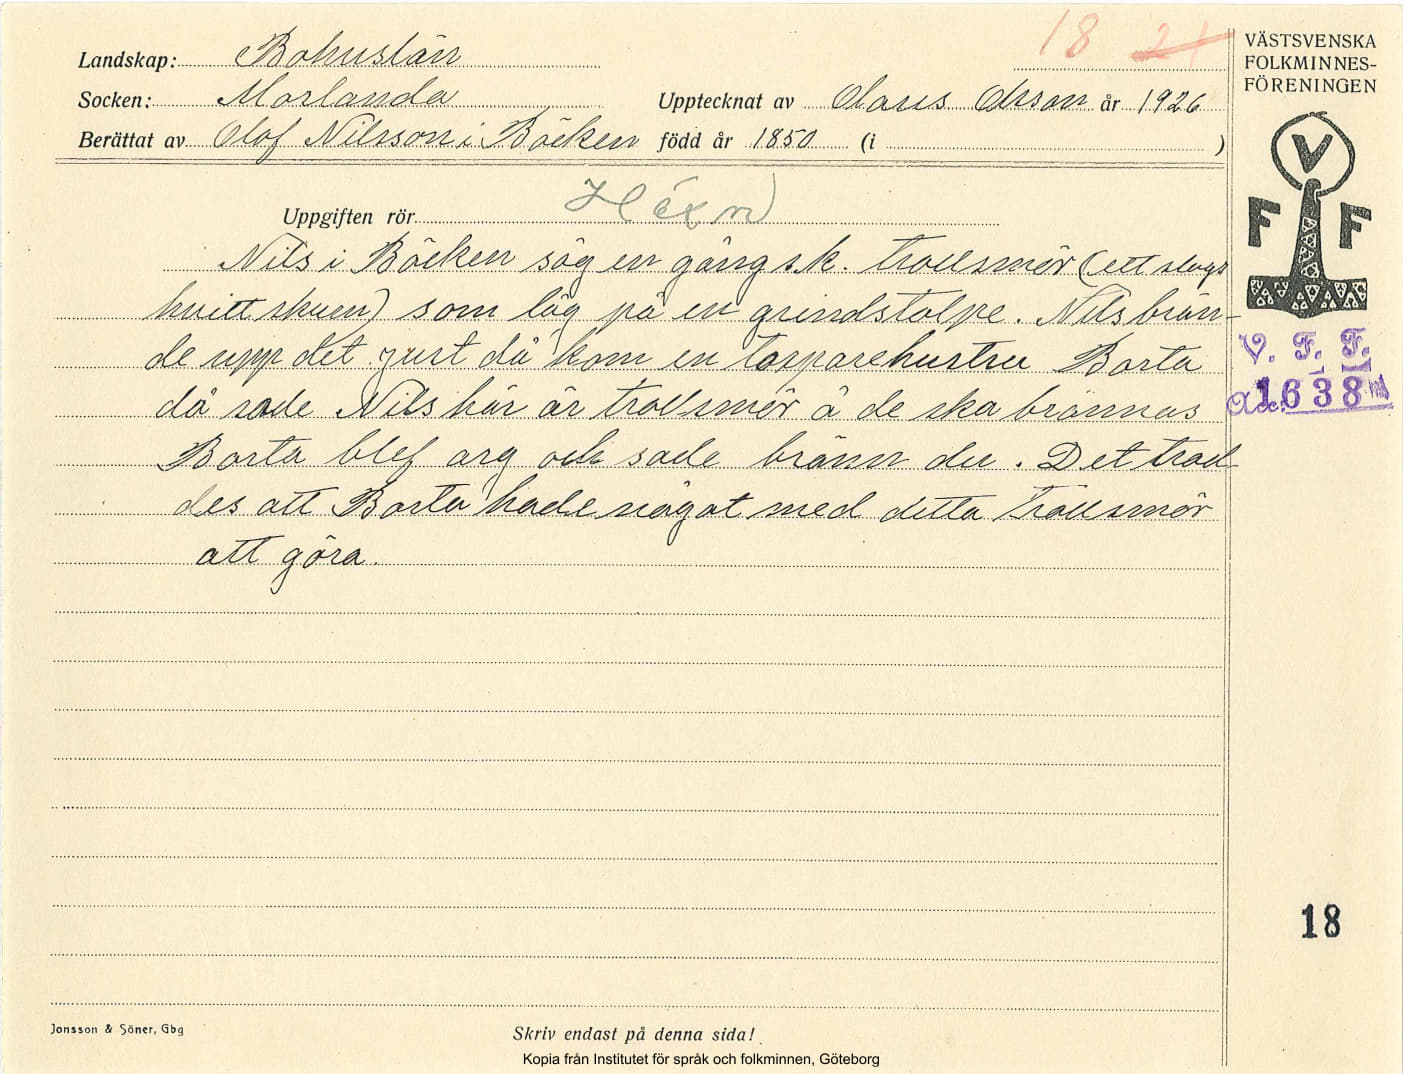 18 21
Landskap: Bohuslän
Socken: Morlanda
Upptecknat av Olaus Olsson år 1926
Berättat av Olof Nilsson i Bäcken född år 1850 (i )
Uppgiften rör Häxn
Nils i Bäcken såg en gång s.k. trollsmör (ett slags
hvitt skum) som låg på en grindstolpe. Nils brän-
de upp det just då kom en torparehustru Borta
då sade Nils här är trollsmör å de ska brännas
Borta blef arg och sade bränn du. Det trod
des att Borta hade något med detta trollsmör
att göra.
VÄSTSVENSKA
FOLKMINNES-
FÖRENINGEN
V
F F
V. F. F.
Acc. 1638
18
Jonsson & Söner, Gbg
Skriv endast på denna sida!
Kopia från Institutet för språk och folkminnen, Göteborg